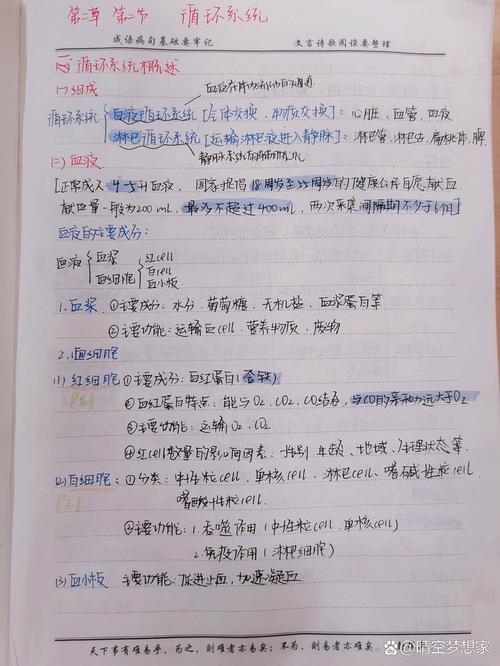 第二章 第二节 循环系统
成语病句基础要牢记 文言诗歌阅读要整理
一、循环系统概述
(一)组成
血液在体内流动的通道
循环系统 血液循环系统[气体交换、物质交换]:心脏、血管、血液
淋巴循环系统[运输淋巴液进入静脉]:淋巴管、淋巴结、扁桃体、脾
静脉系统的辅助
(二)血液
[正常成人4-5升血液, 国家提倡18周岁至55周岁的健康公民自愿献血
献血量一般为200mL,最多不超过400mL,两次采集间隔期不少于6个月]
血液的主要成分:
血液 血浆
血细胞 红cell
白cell
血小板
1.血浆 ①主要成分:水分、葡萄糖、无机盐、血浆蛋白等
②主要功能:运输血cell、营养物质、废物
2.血细胞
(1)红细胞 ①主要成分:血红蛋白(含铁)
P21 ②血红蛋白特点:能与O2、CO2、CO结合,与CO的亲和力远大于O2
③主要功能:运输O2、CO2
④红cell数量的影响因素:性别、年龄、地域、生理状态等
(2)白细胞:①分类:中性粒cell、单核cell、淋巴cell、嗜碱性粒cell、
P21 嗜酸性粒cell
②主要功能:1.吞噬作用(中性粒cell、单核cell)
2.免疫作用(淋巴细胞)
(3)血小板 主要功能:促进止血,加速凝血
天下事有难易乎,为之,则难者亦易矣;不为,则易者亦难矣。
@晴空梦想家